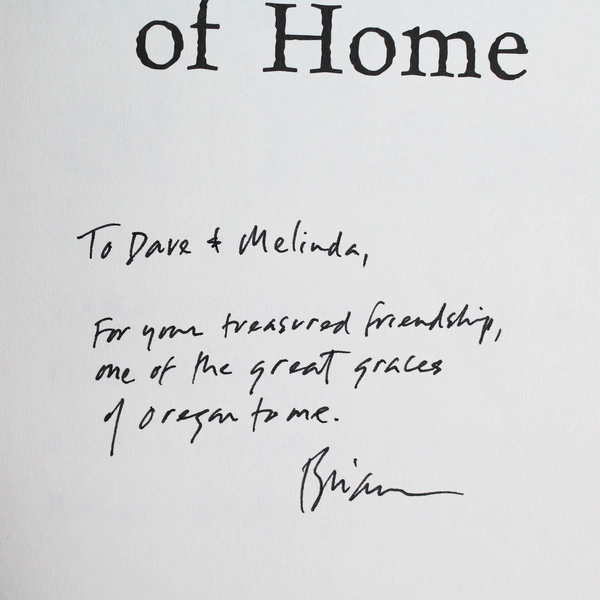 of Home
To Dave & Melinda,
For your treasured friendship,
one of the great graces
of Oregon to me.
Brian